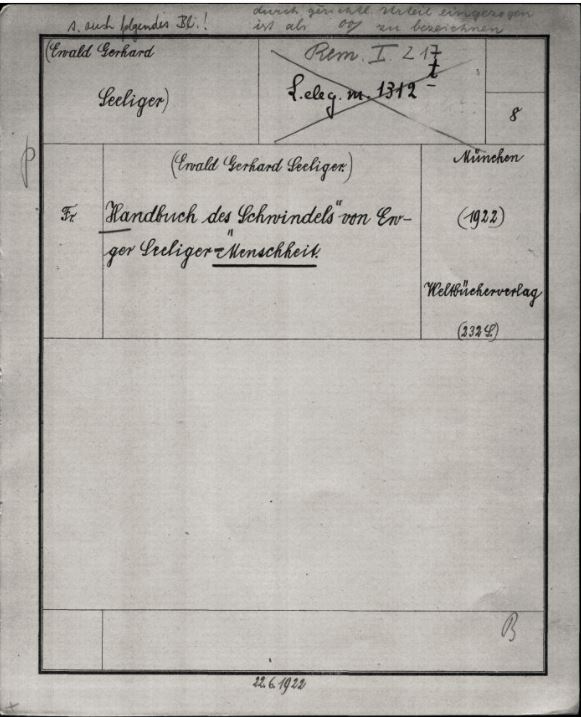 durch gerichtl. Urteil eingezogen
s. auch folgendes Bl.!
ist als 00/ zu bezeichnen
(Ewald Gerhard
Seeliger)
Rem. I 217
t
L.eleg.m. 1312
8
(Ewald Gerhard Seeliger)
München
Fr.
"Handbuch des Schwindels" von Ew-
ger Seeliger=Menschheit.
(1922)
Weltbücherverlag
(232 S.)
B
22.6.1922